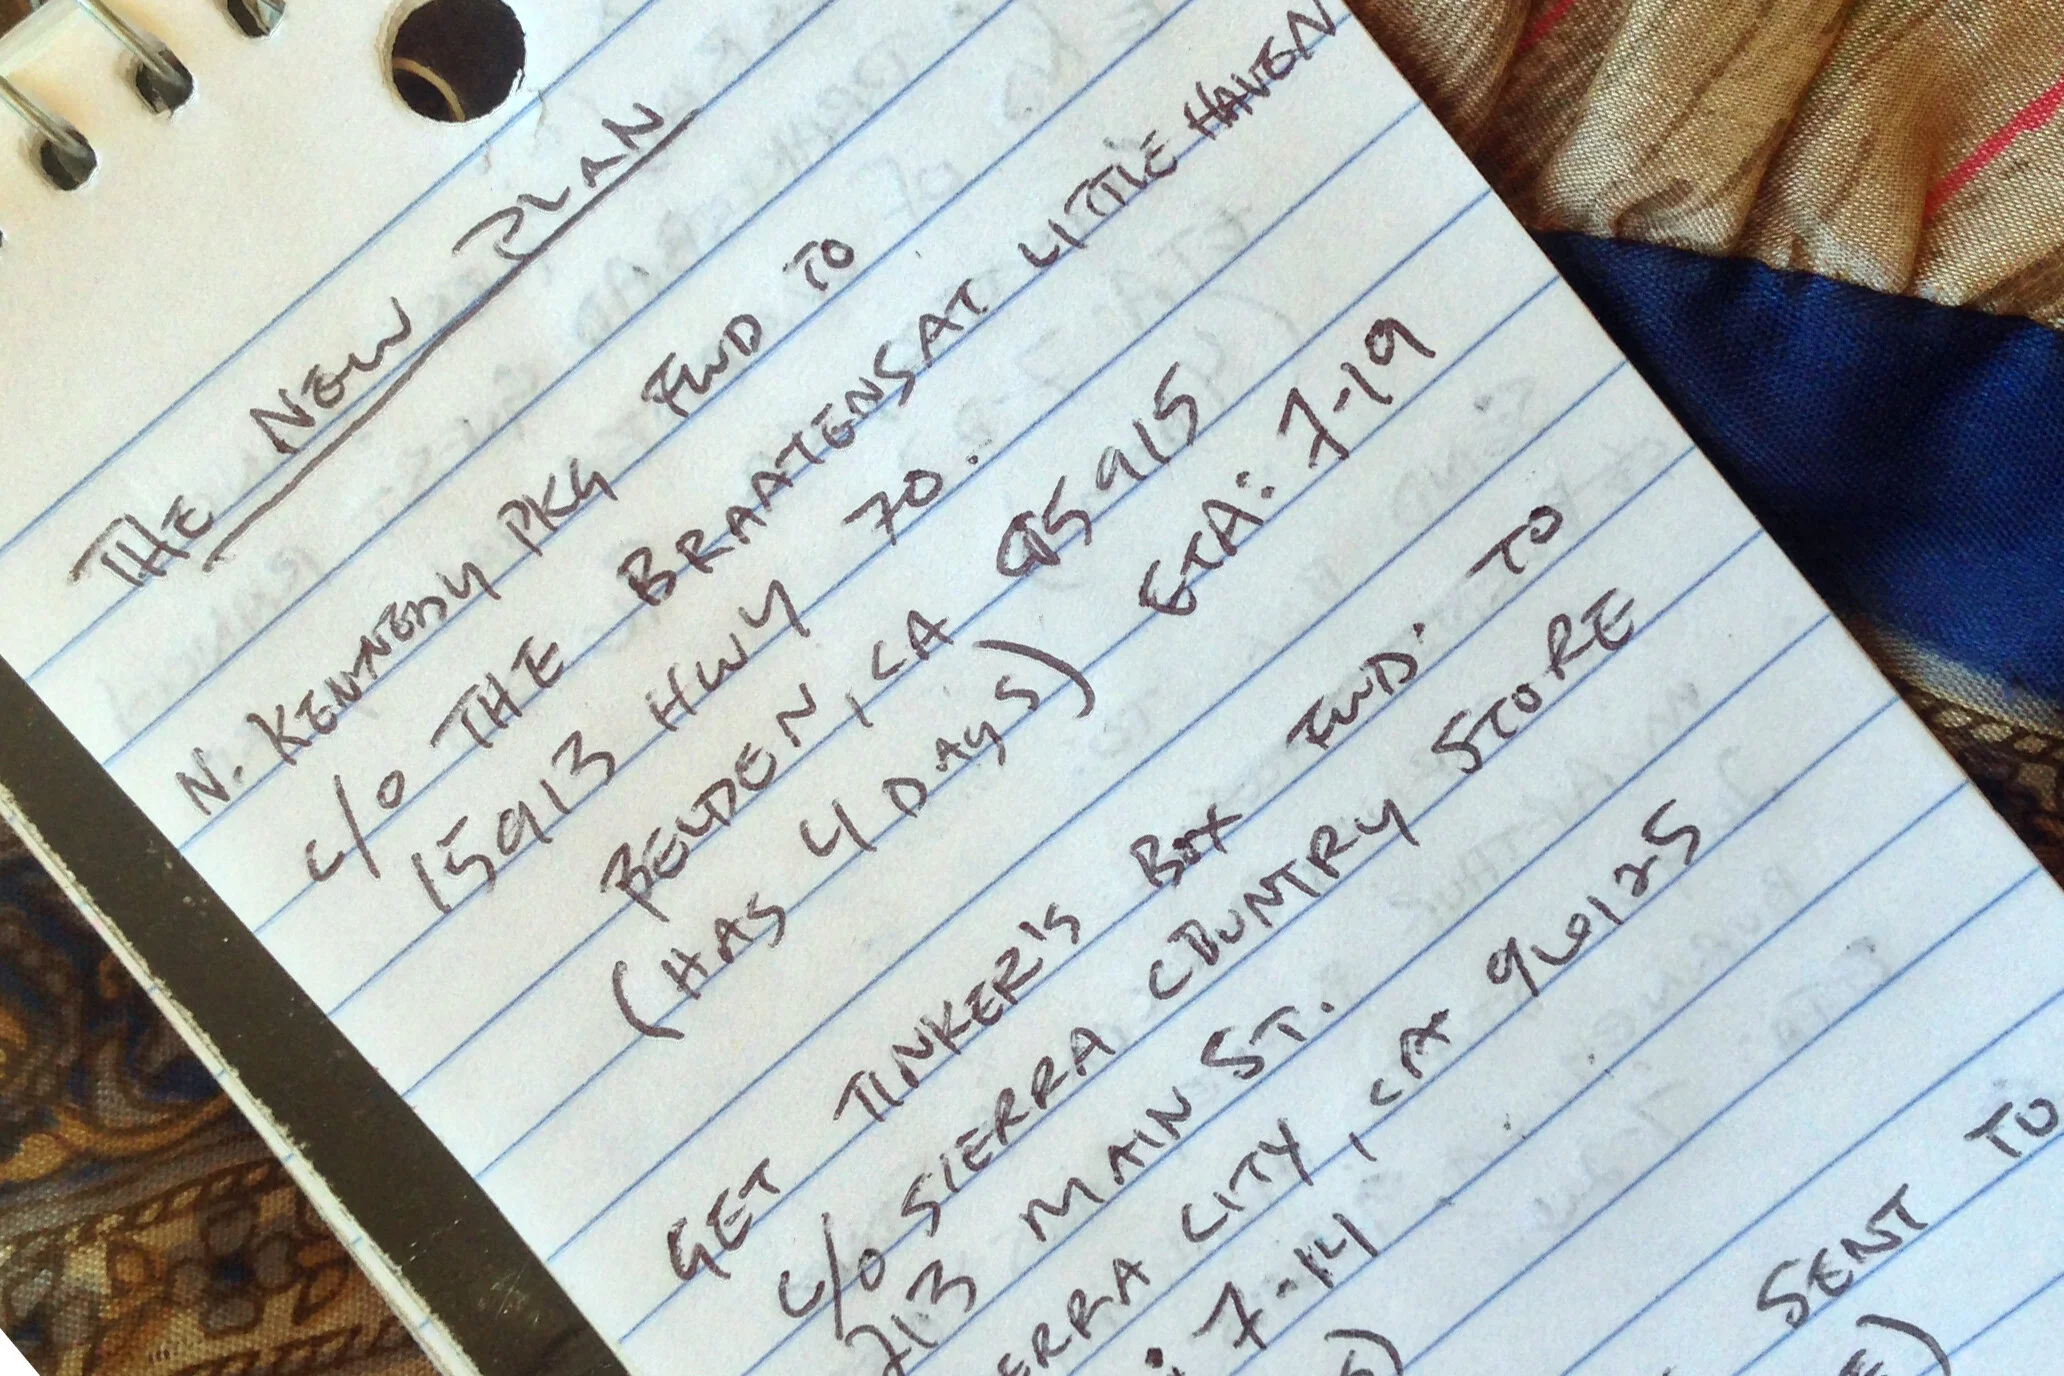 THE NEW PLAN
N. KENNEDY PKG FWD TO
C/O THE BRAATENS AT LITTLE HAVEN
15913 HWY 70.
BELDEN, CA 95915
(HAS 4 DAYS) ETA: 7-19
GET TINKER'S BOX FWD: TO
C/O SIERRA COUNTRY STORE
213 MAIN ST.
ERRA CITY, CA 96125
: 7-14
SENT TO